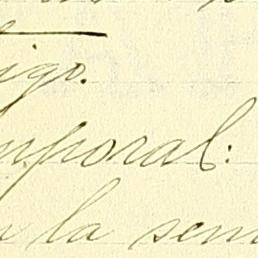 igo.
mporal:
la sem